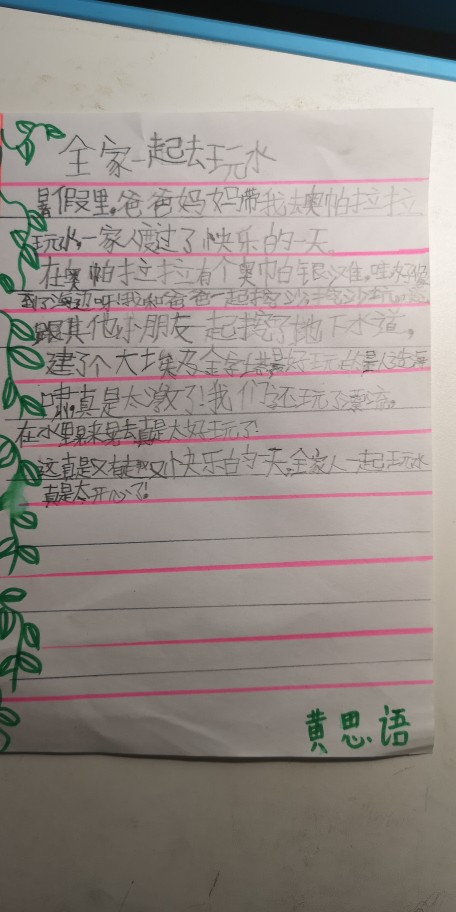 全家一起去玩水
暑假里,爸爸妈妈带我去奥帕拉拉
玩水,一家人度过了快乐的一天。
在奥帕拉拉有个奥巾白银滩,哇好像
到了海边呀!我和爸爸一起挖沙挖沙坑
跟其他小朋友一起挖了地下水道,
建了个大埃及金字塔最好玩的是人造海
啸,真是太激了!我们还玩了漂流,
在水里来去真是太好玩了!
这真是又又快乐的一天,全家人一起玩水
真是太开心了!
黄思语